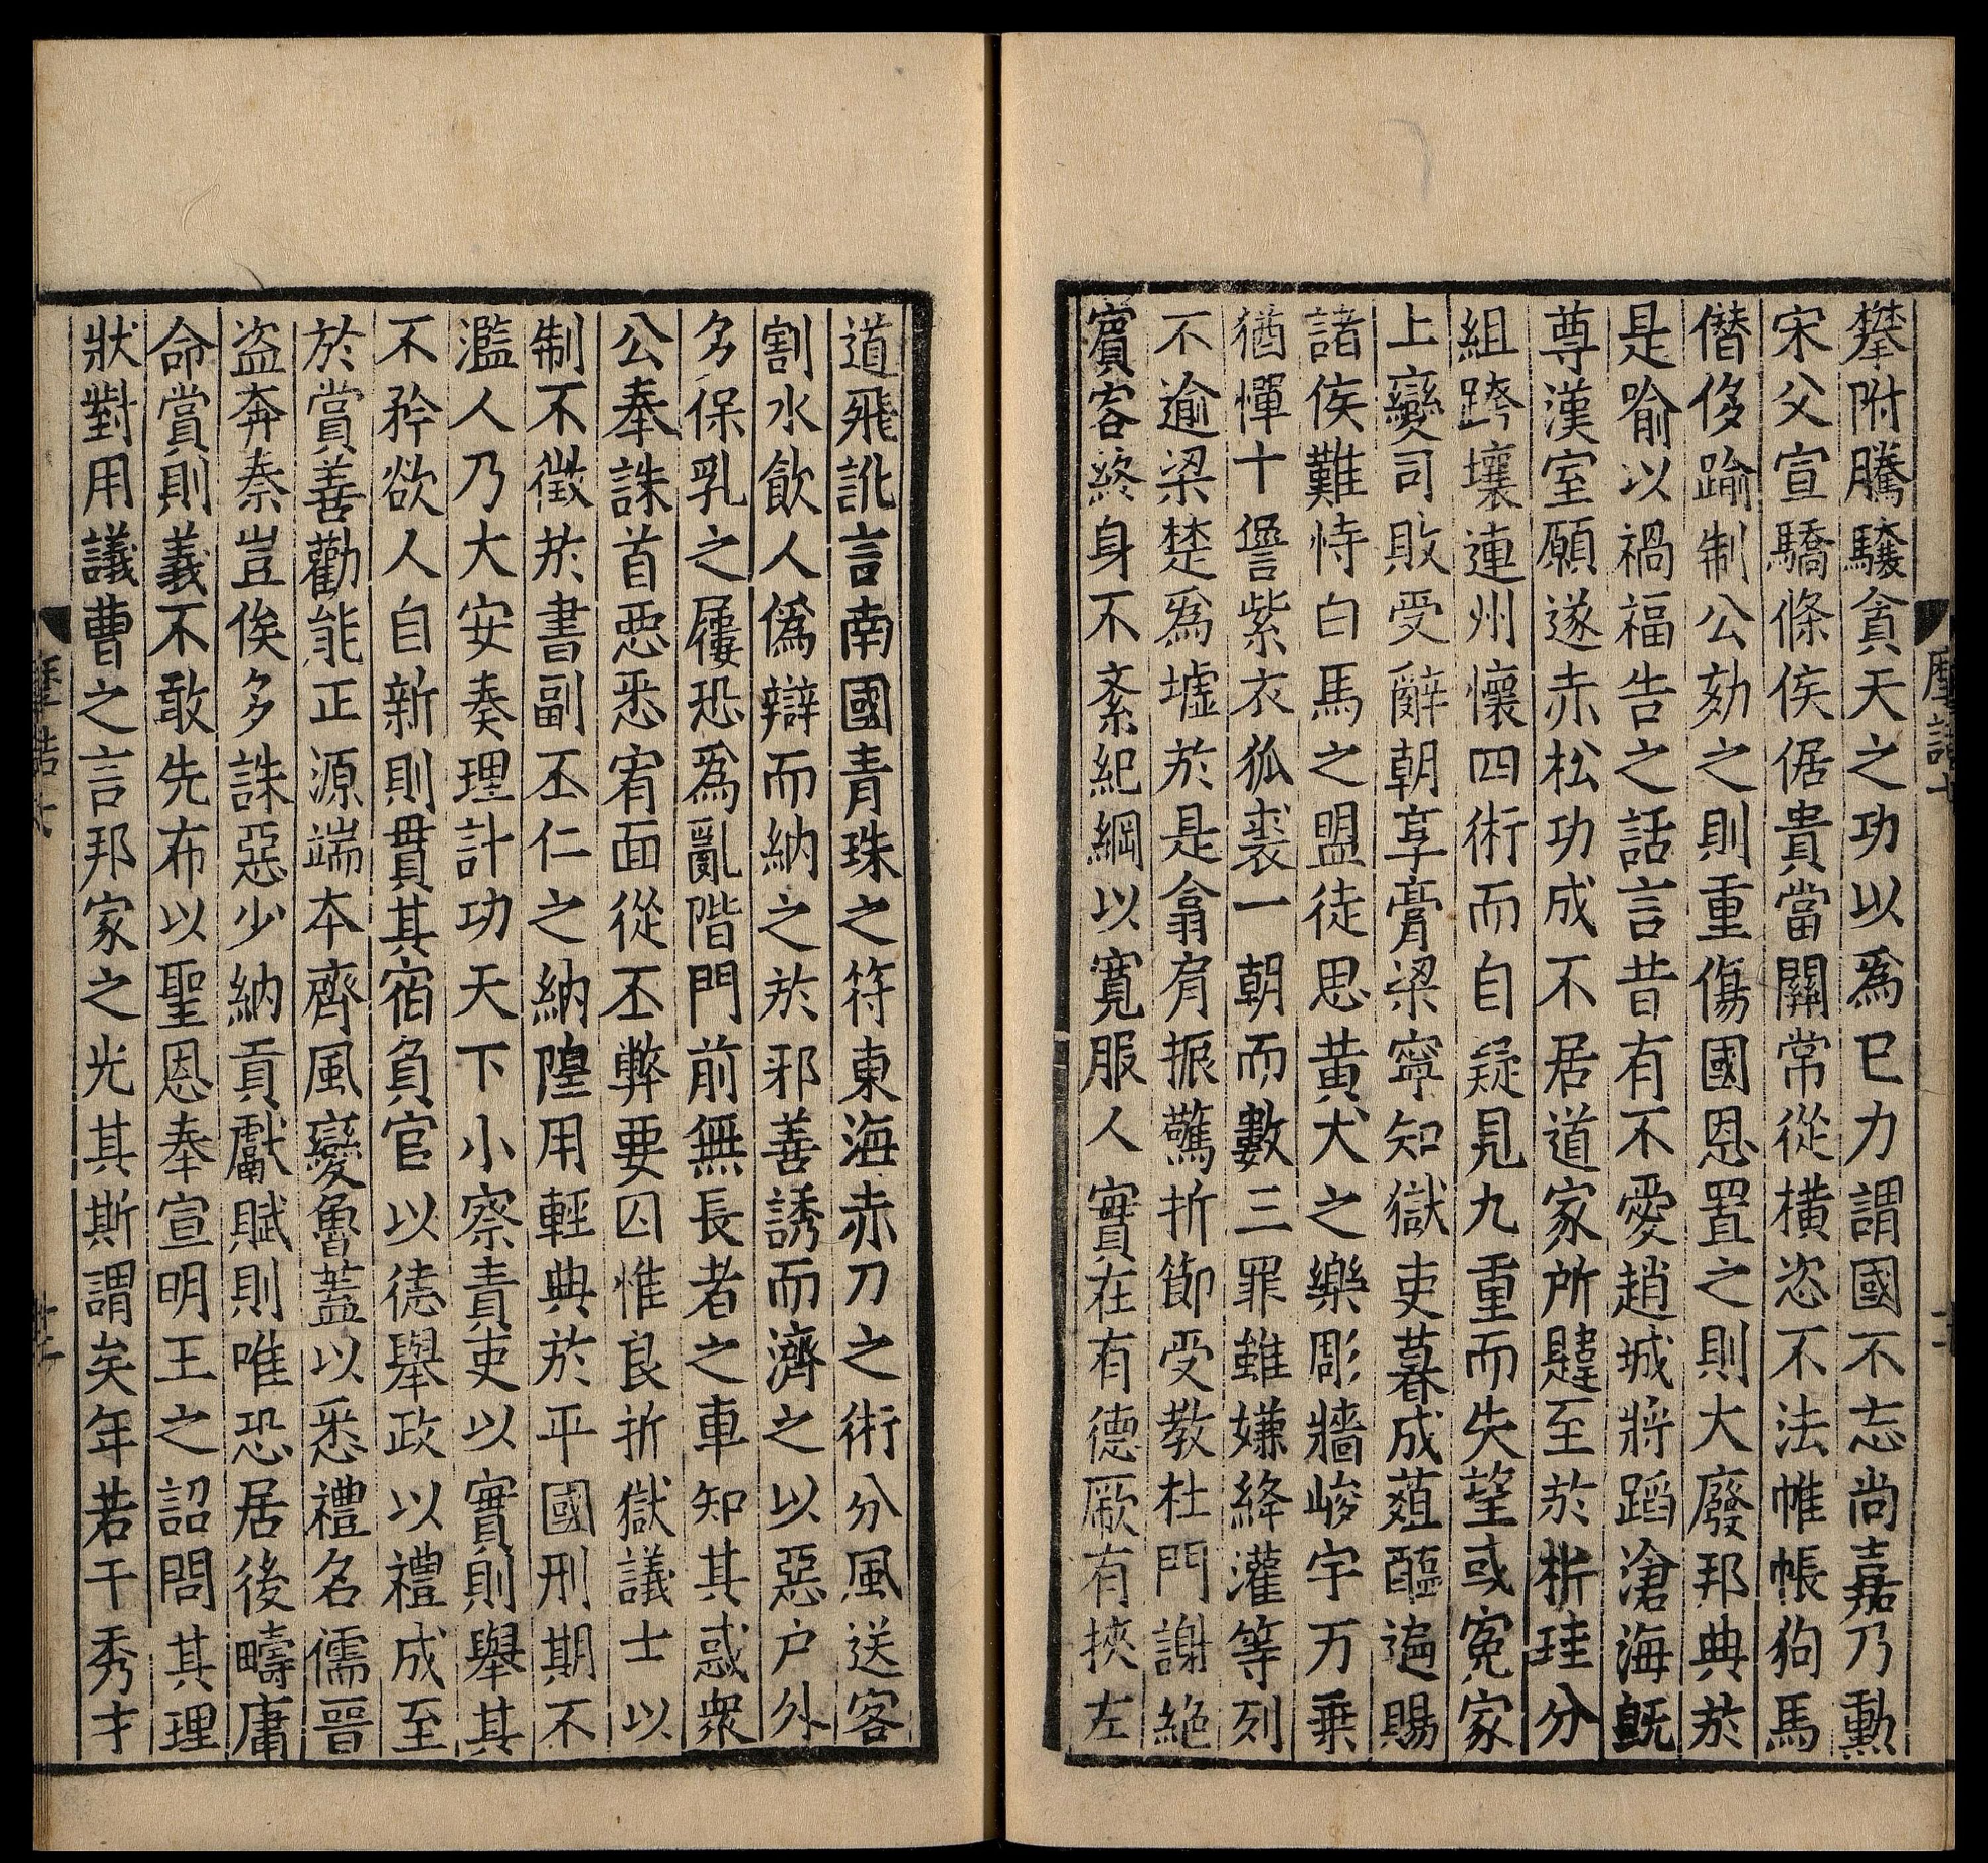 攀附騰驤貪天之功以爲巳力謂國不忘尚嘉乃勳
宋父宣驕條侯倨貴當關常從橫恣不法帷帳狗馬
僭侈踰制公劾之則重傷國恩置之則大廢邦典於
是喻以禍福告之話言昔有不愛趙城將蹈滄海旣
尊漢室願遂赤松功成不居道家所韙至於析珪分
組跨壤連州懷四術而自疑見九重而失望或寃家
上變司敗受辭朝享膏粱寧知獄吏暮成葅醢遍賜
諸侯難恃白馬之盟徒思黃犬之樂彫牆峻宇万乗
猶憚十𠎝紫衣狐裘一朝而數三罪雖嫌絳灌等列
不逾梁楚爲墟於是翕肩振驚折節受教杜門謝絕
賔客終身不紊紀綱以寬服人實在有德厥有挾左
道飛訛言南國青珠之符東海赤刀之術分風送客
割水飲人僞辯而納之於邪善誘而濟之以惡户外
多保乳之屨恐爲亂階門前無長者之車知其惑衆
公奉誅首惡悉宥面從丕弊要囚惟良折獄議士以
制不徵於書副丕仁之納隍用輕典於平國刑期不
濫人乃大安奏理計功天下小察責吏以實則舉其
不矜欲人自新則貫其宿負官以德舉政以禮成至
於賞善勸能正源端本齊風變魯蓋以悉禮名儒晉
盗奔秦豈俟多誅惡少納貢獻賦則唯恐居後疇庸
命賞則義不敢先布以聖恩奉宣明王之詔問其理
狀對用議曹之言邦家之光其斯謂矣年若干秀才